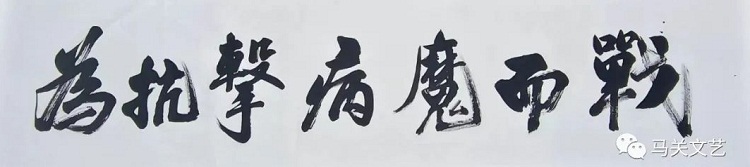 為抗擊病魔而戰
马关文艺